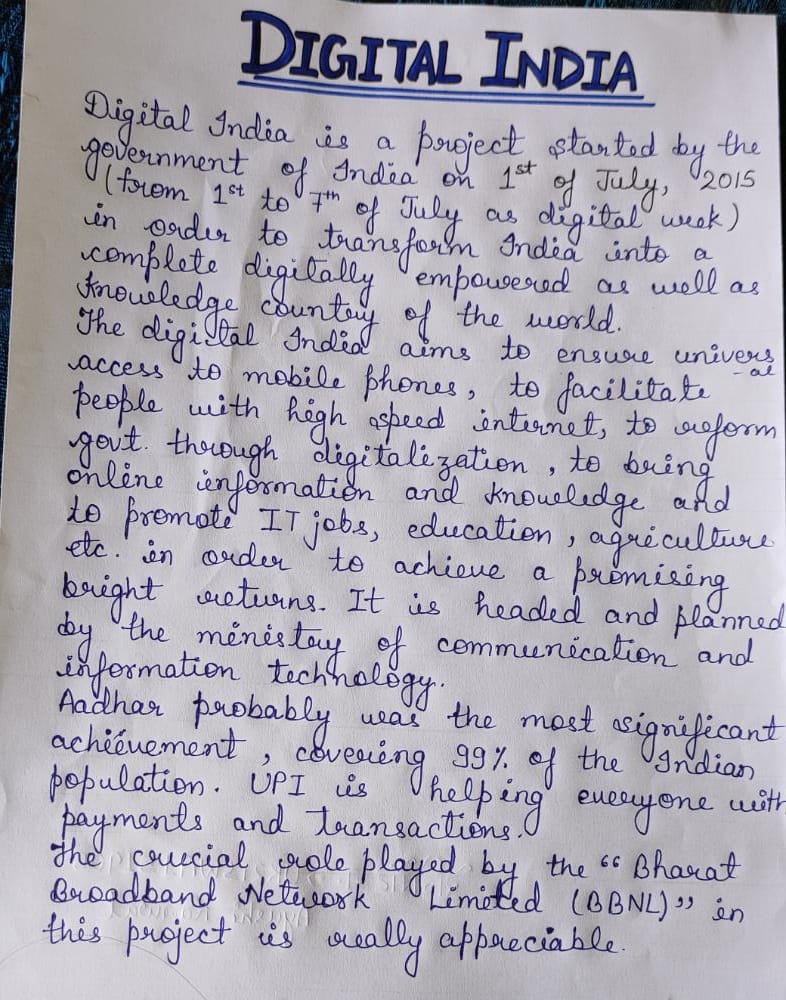 DIGITAL INDIA
Digital India is a project started by the
government of India on 1st of July, 2015
(from 1st to 7th of July as digital week)
in order to transform India into a
complete digitally empowered as well as
knowledge country of the world.
The digital India aims to ensure univers
-al
access to mobile phones, to facilitate
people with high speed internet, to reform
govt. through digitalization, to bring
online information and knowledge and
to promote IT jobs, education, agriculture
etc. in order to achieve a promising
bright returns. It is headed and planned
by the ministry of communication and
information technology.
Aadhar probably was the most significant
achievement, covering 99% of the Indian
population. UPI is helping everyone with
payments and transactions.
The crucial role played by the "Bharat
Broadband Network Limited (BBNL)" in
this project is really appreciable.